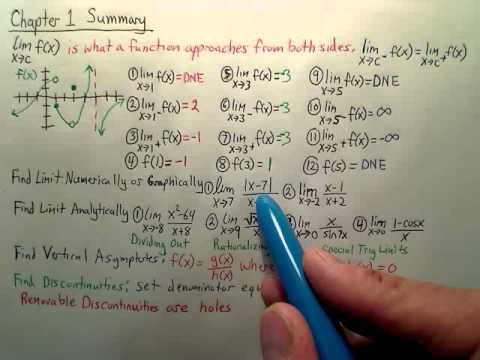 Chapter 1 Summary
lim x→c f(x) is what a function approaches from both sides. lim x→c⁻ f(x) = lim x→c⁺ f(x)
f(x)
① lim x→1 f(x) = DNE ⑤ lim x→3 f(x) = -3 ⑨ lim x→5 f(x) = DNE
② lim x→1⁻ f(x) = 2 ⑥ lim x→3⁻ f(x) = -3 ⑩ lim x→5⁻ f(x) = ∞
③ lim x→1⁺ f(x) = -1 ⑦ lim x→3⁺ f(x) = -3 ⑪ lim x→5⁺ f(x) = -∞
④ f(1) = -1 ⑧ f(3) = 1 ⑫ f(5) = DNE
Find Limit Numerically or Graphically ① lim x→7 |x-7| / x ② lim x→-2 x-1 / x+2
Find Limit Analytically ① lim x→-8 x²-64 / x+8 ② lim x→9 ③ lim x→0 x / sin7x ④ lim x→0 1-cosx / x
Dividing Out Special Trig Limits
Find Vertical Asymptotes: f(x) = g(x) / h(x) where = 0
Find Discontinuities: set denominator
Removable Discontinuities are holes